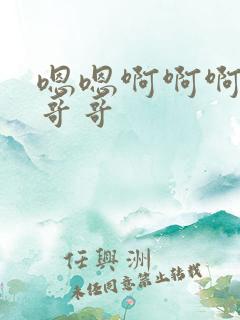 嗯嗯啊啊啊
哥哥
任興洲
未经同意禁止转载